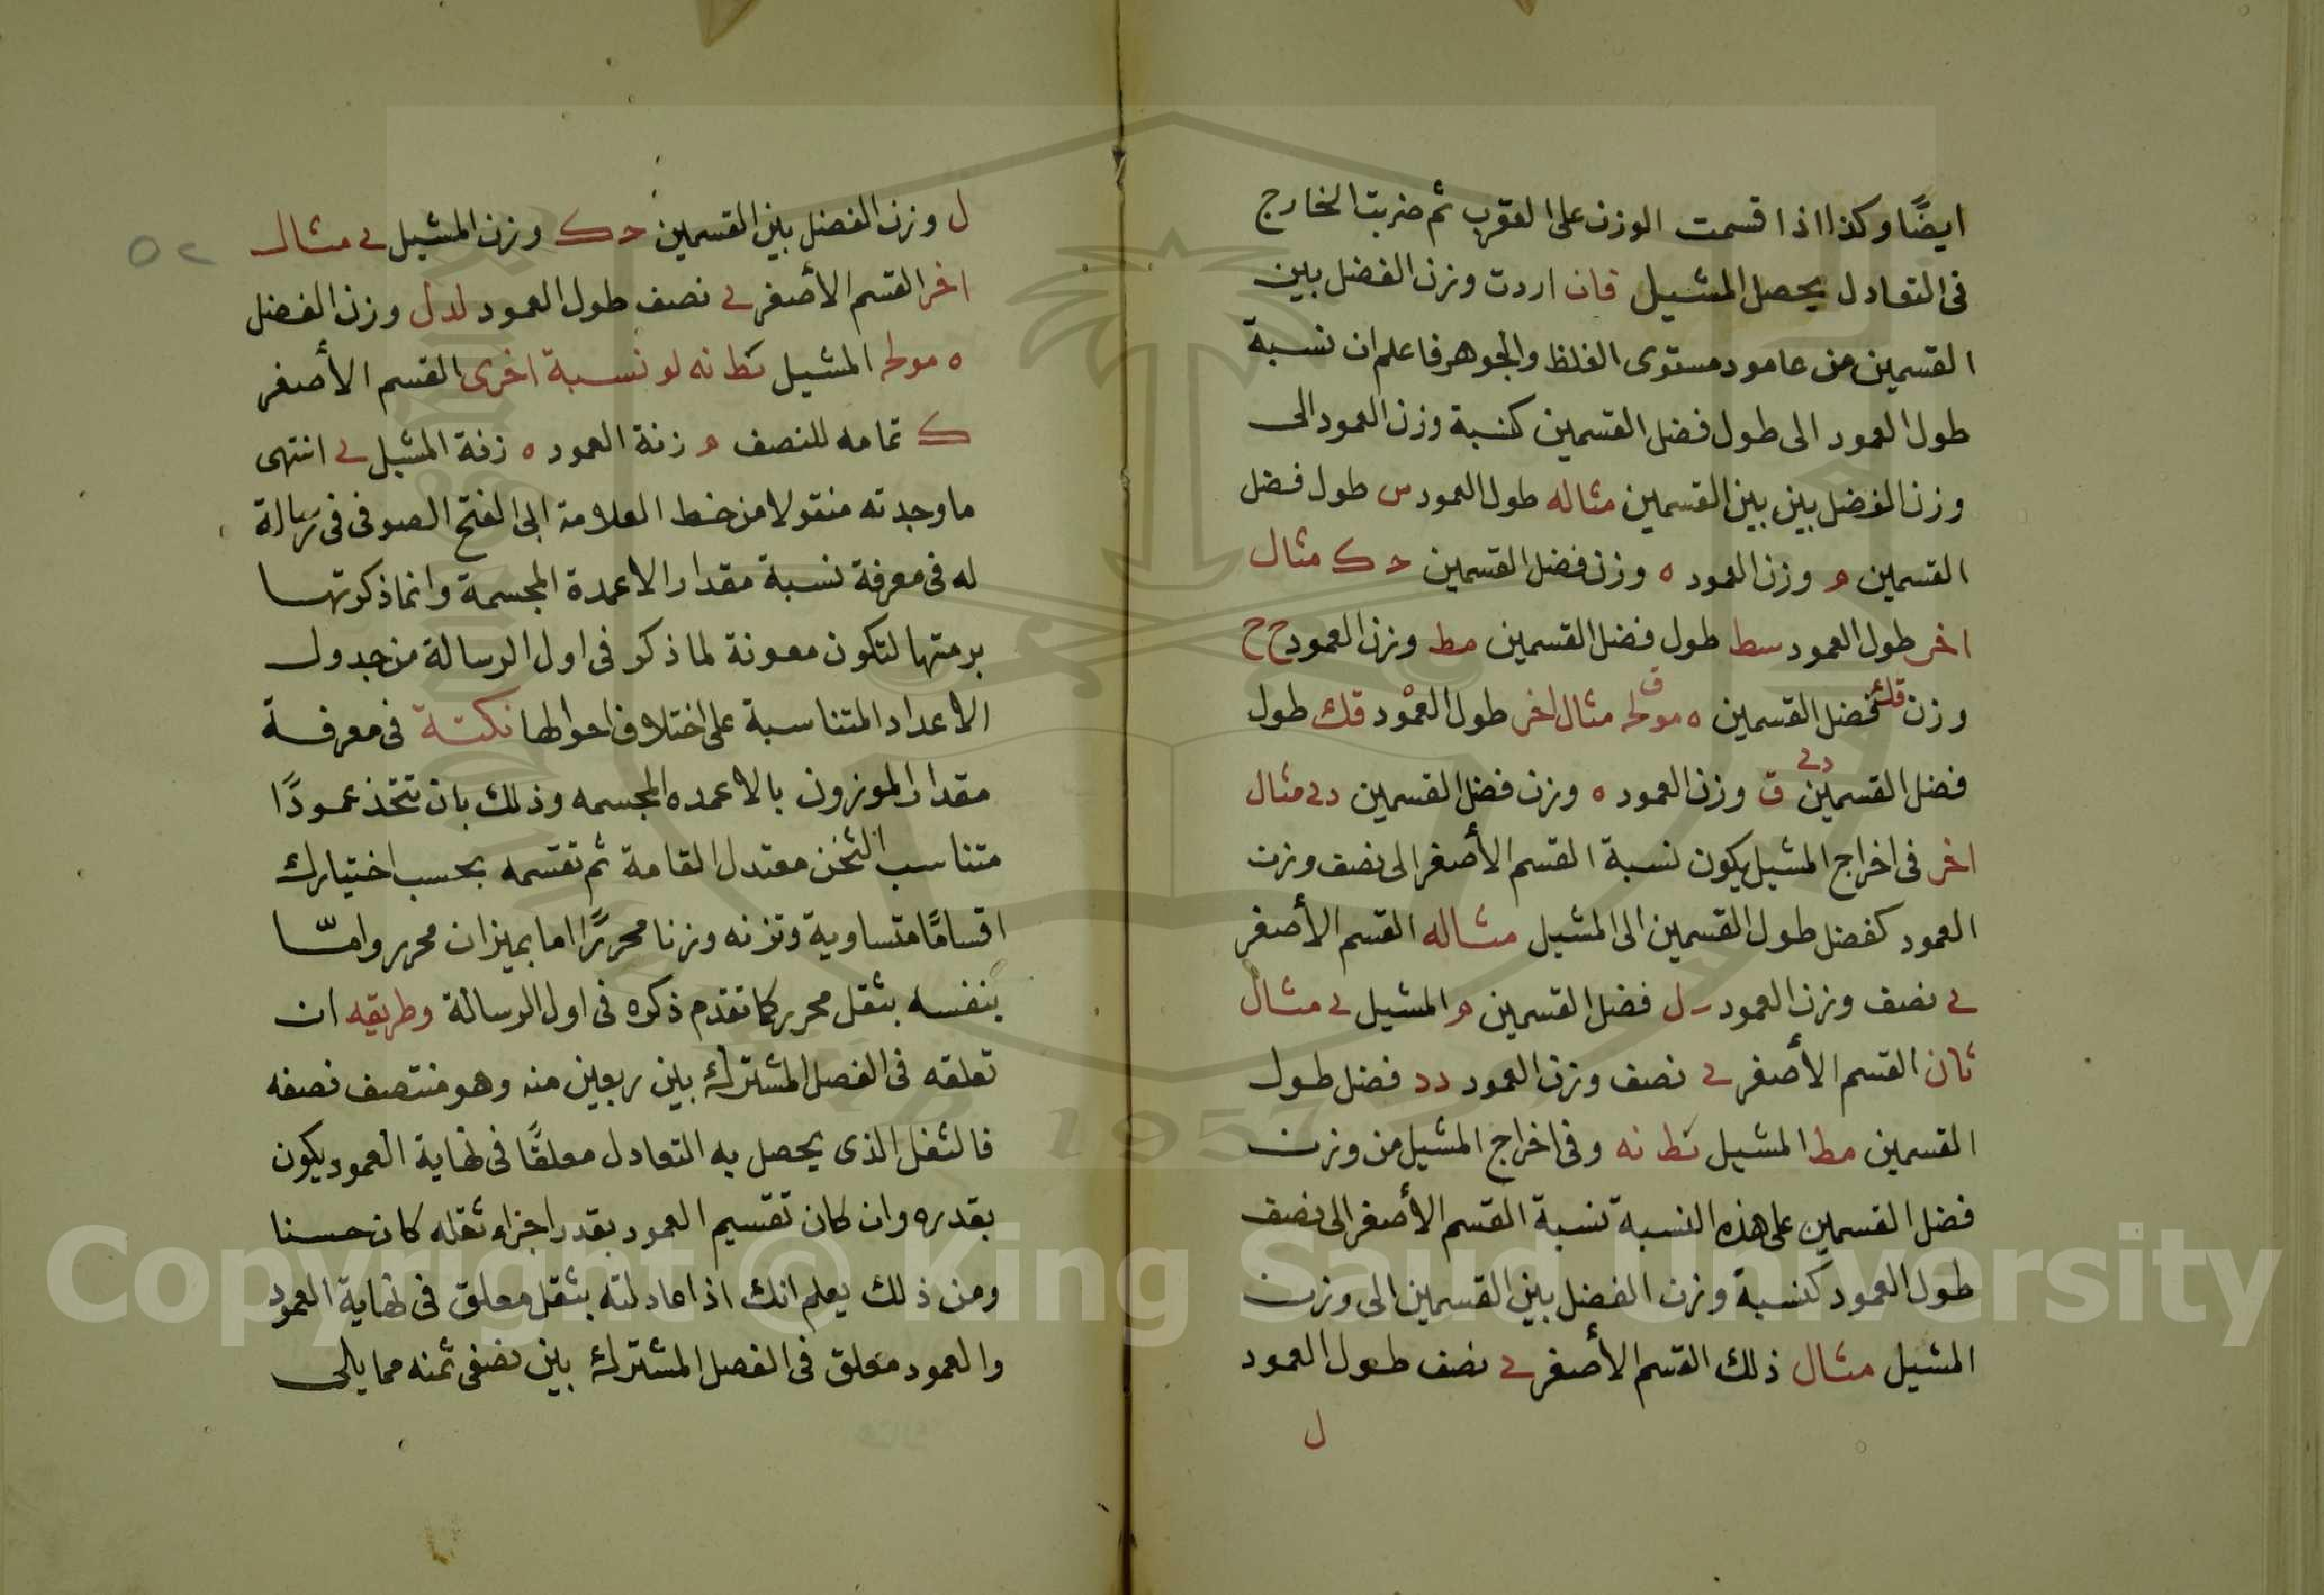 ايضًا وكذا اذا قسمت الوزن على العقرب ثم ضربت الخارج
فى التعادل يحصل المشيل فان اردت وزن الفضل بين
القسمين من عامود مستوى الغلظ والجوهر فاعلم ان نسبة
طول العمود الى طول فضل القسمين كنسبة وزن العمود الى
وزن الفضل بين بين القسمين مثاله طول العمود س طول فضل
القسمين م وزن العمود ه وزن فضل القسمين ح ك مثال
اخر طول العمود سط طول فضل القسمين مط وزن العمود ح ح
وزن فضل القسمين ه مثال اخر طول العمود قك طول
فضل القسمين ق وزن العمود ه وزن فضل القسمين دى مثال
اخر فى اخراج المشيل يكون نسبة القسم الأصغر الى نصف وزن
العمود كفضل طول القسمين الى المشيل مثاله القسم الأصغر
ى نصف وزن العمود ل فضل القسمين م المشيل ى مثال
ثان القسم الأصغر ى نصف وزن العمود دد فضل طول
القسمين مط المشيل كط نه وفى اخراج المشيل من وزن
فضل القسمين على هذه النسبة نسبة القسم الأصغر الى نصف
طول العمود كنسبة وزن الفضل بين القسمين الى وزن
المشيل مثال ذلك القسم الأصغر ى نصف طول العمود
ل
٥٢
ل وزن الفضل بين القسمين ح ك وزن المشيل ى مثال
اخر القسم الأصغر ى نصف طول العمود لدل وزن الفضل
ه المشيل كط نه لو نسبة اخرى القسم الأصغر
ك تمامه للنصف م زنة العمود ه زنة المشيل ى انتهى
ما وجدته منقولا من خط العلامة ابى الفتح الصوفى فى رسالة
له فى معرفة نسبة مقدار الاعمدة المجسمة وانما ذكرتها
برمتها لتكون معونة لما ذكر فى اول الرسالة من جدول
الاعداد المتناسبة على اختلاف احوالها نكتة فى معرفة
مقدار الموزون بالاعمده المجسمه وذلك بان تتخذ عمودًا
متناسب الثخن معتدل القامة ثم تقسمه بحسب اختيارك
اقسامًا متساوية وتزنه وزنا محررًا اما بميزان محرر وامّا
بنفسه بثقل محرر كما تقدم ذكره فى اول الرسالة وطريقه ان
تعلقه فى الفصل المشترك بين ربعين منه وهو منتصف نصفه
فالثقل الذى يحصل به التعادل معلقًا فى نهاية العمود يكون
بقدره وان كان تقسيم العمود بقدر اجزاء ثقله كان حسنا
ومن ذلك يعلم انك اذا عادلته بثقل معلق فى نهاية العمود
والعمود معلق فى الفصل المشترك بين نصفى ثمنه مما يلى
Copyright © King Saud University
1957